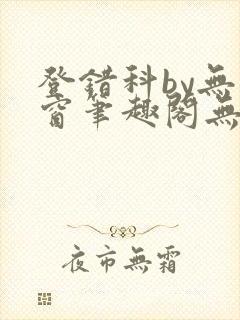 登錯科by無
窗笔趣阁無
夜市無霜